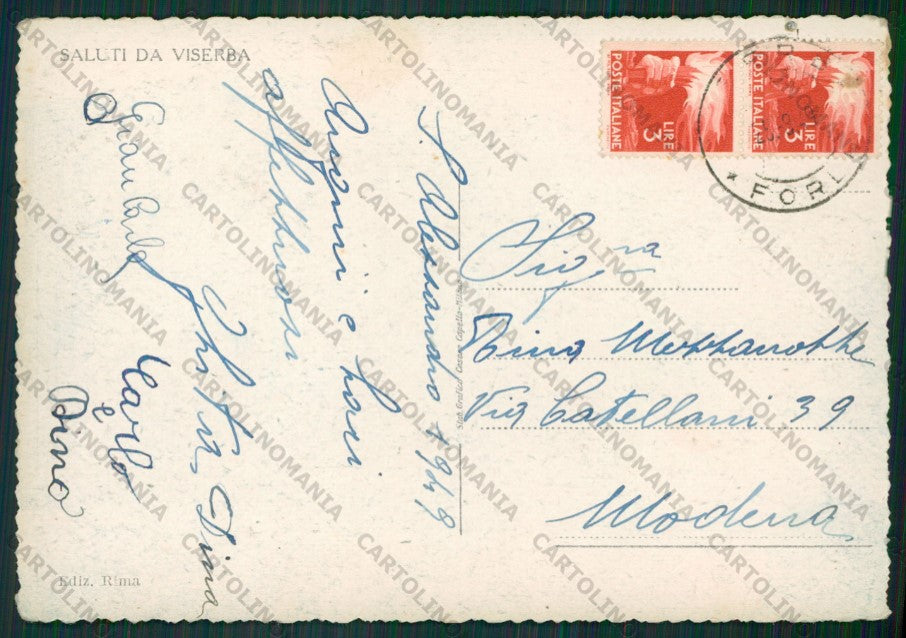 SALUTI DA VISERBA
S. Alessandro 1949
Auguri e baci
affettuosi
Dina
Gian Carlo
Carlo
e
Dino
Ediz. Rima
POSTE ITALIANE
LIRE
3
POSTE ITALIANE
LIRE
3
* FORLI
Sig.ra
Mezzanotte
Via Castellani 39
Modena
CARTOLINOMANIA